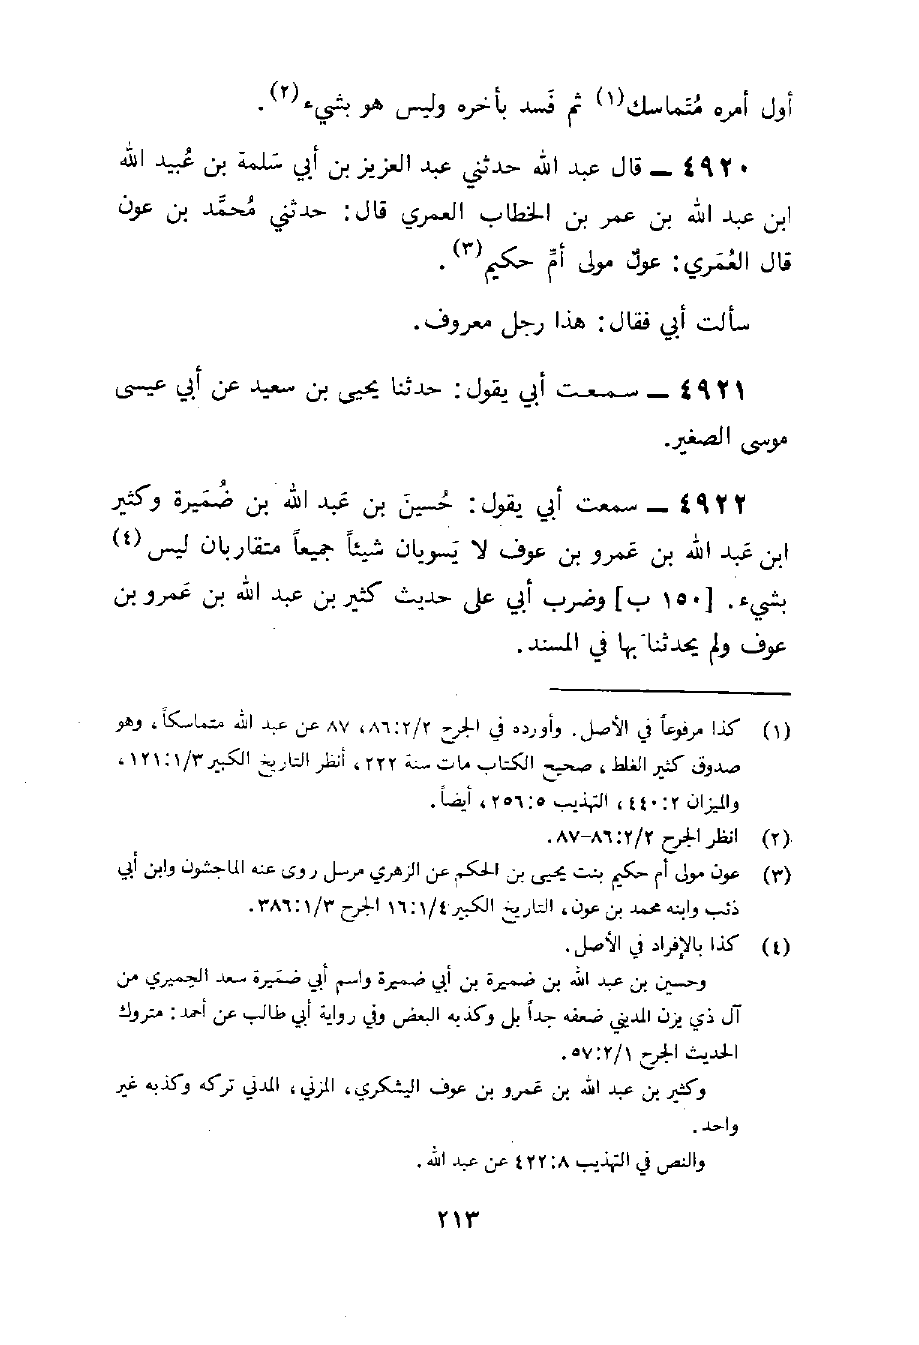 أول أمره مُتَماسك(١) ثم فَسد بأخره وليس هو بشيء(٢).
٤٩٢٠ ـ قال عبد الله حدثني عبد العزيز بن أبي سَلمة بن عُبيد الله
ابن عبد الله بن عمر بن الخطاب العمري قال: حدثني مُحمَّد بن عون
قال العُمَري: عونٌ مولى أمِّ حكيم(٣).
سألت أبي فقال: هذا رجل معروف.
٤٩٢١ ـ سمعت أبي يقول: حدثنا يحيى بن سعيد عن أبي عيسى
موسى الصغير.
٤٩٢٢ ـ سمعت أبي يقول: حُسينَ بن عَبد الله بن ضُمَيرة وكثير
ابن عَبد الله بن عَمرو بن عوف لا يَسويان شيئاً جميعاً متقاربان ليس(٤)
بشيء. [١٥٠ ب] وضرب أبي على حديث كثير بن عبد الله بن عَمرو بن
عوف ولم يحدثنا بها في المسند.
(١) كذا مرفوعاً في الأصل. وأورده في الجرح ٨٦:٢/٢، ٨٧ عن عبد الله متماسكاً، وهو
صدوق كثير الغلط، صحيح الكتاب مات سنة ٢٢٢، أنظر التاريخ الكبير ١٢١:١/٣،
والميزان ٤٤٠:٢، التهذيب ٢٥٦:٥، أيضاً.
(٢) انظر الجرح ٨٦:٢/٢-٨٧.
(٣) عون مولى أم حكيم بنت يحيى بن الحكم عن الزهري مرسل روى عنه الماجشون وابن أبي
ذئب وابنه محمد بن عون، التاريخ الكبير ١٦:١/٤ الجرح ٣٨٦:١/٣.
(٤) كذا بالإفراد في الأصل.
وحسين بن عبد الله بن ضميرة بن أبي ضميرة واسم أبي ضَمَيرة سعد الحميري من
آل ذي يزن المديني ضعفه جداً بل وكذبه البعض وفي رواية أبي طالب عن أحمد: متروك
الحديث الجرح ٥٧:٢/١.
وكثير بن عبد الله بن عَمرو بن عوف اليشكري، المزني، المدني تركه وكذبه غير
واحد.
والنص في التهذيب ٤٢٢:٨ عن عبد الله.
٢١٣